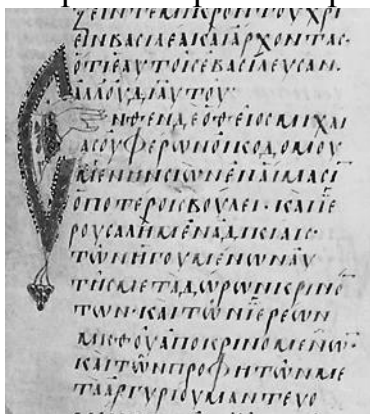 ΧΕΙΝΤΕΜΙΚΡΟΝΤΟΥΧΡΙ
ΕΙΝΒΑΣΙΛΕΑΚΑΙΑΡΧΟΝΤΑΣ·
ΟΤΙΕΑΥΤΟΙΣΕΒΑΣΙΛΕΥΣΑΝ.
ΑΛΛΟΥΔΙΑΥΤΟΥ·
ΝΦΕΝΔΕΟΘΕΙΟΣΜΙΧΑΙ
ΑΣΟΥΦΕΡΩΝΟΙΚΟΔΟΜΟΥ
ΜΕΝΗΝΣΙΩΝΕΝΑΙΜΑΣΙ
ΟΠΟΤΕΡΟΙΣΒΟΥΛΕΙ·ΚΑΙΙΕ
ΡΟΥΣΑΛΗΜΕΝΑΔΙΚΙΑΙΣ·
ΤΩΝΗΓΟΥΜΕΝΩΝΑΥ
ΤΗΣΜΕΤΑΔΩΡΩΝΚΡΙΝΟ
ΤΩΝ·ΚΑΙΤΩΝΙΕΡΕΩΝ
ΜΙΣΘΟΥΑΠΟΚΡΙΝΟΜΕΝΩ
ΚΑΙΤΩΝΠΡΟΦΗΤΩΝΜΕ
ΤΑΑΡΓΥΡΙΟΥΜΑΝΤΕΥΟ